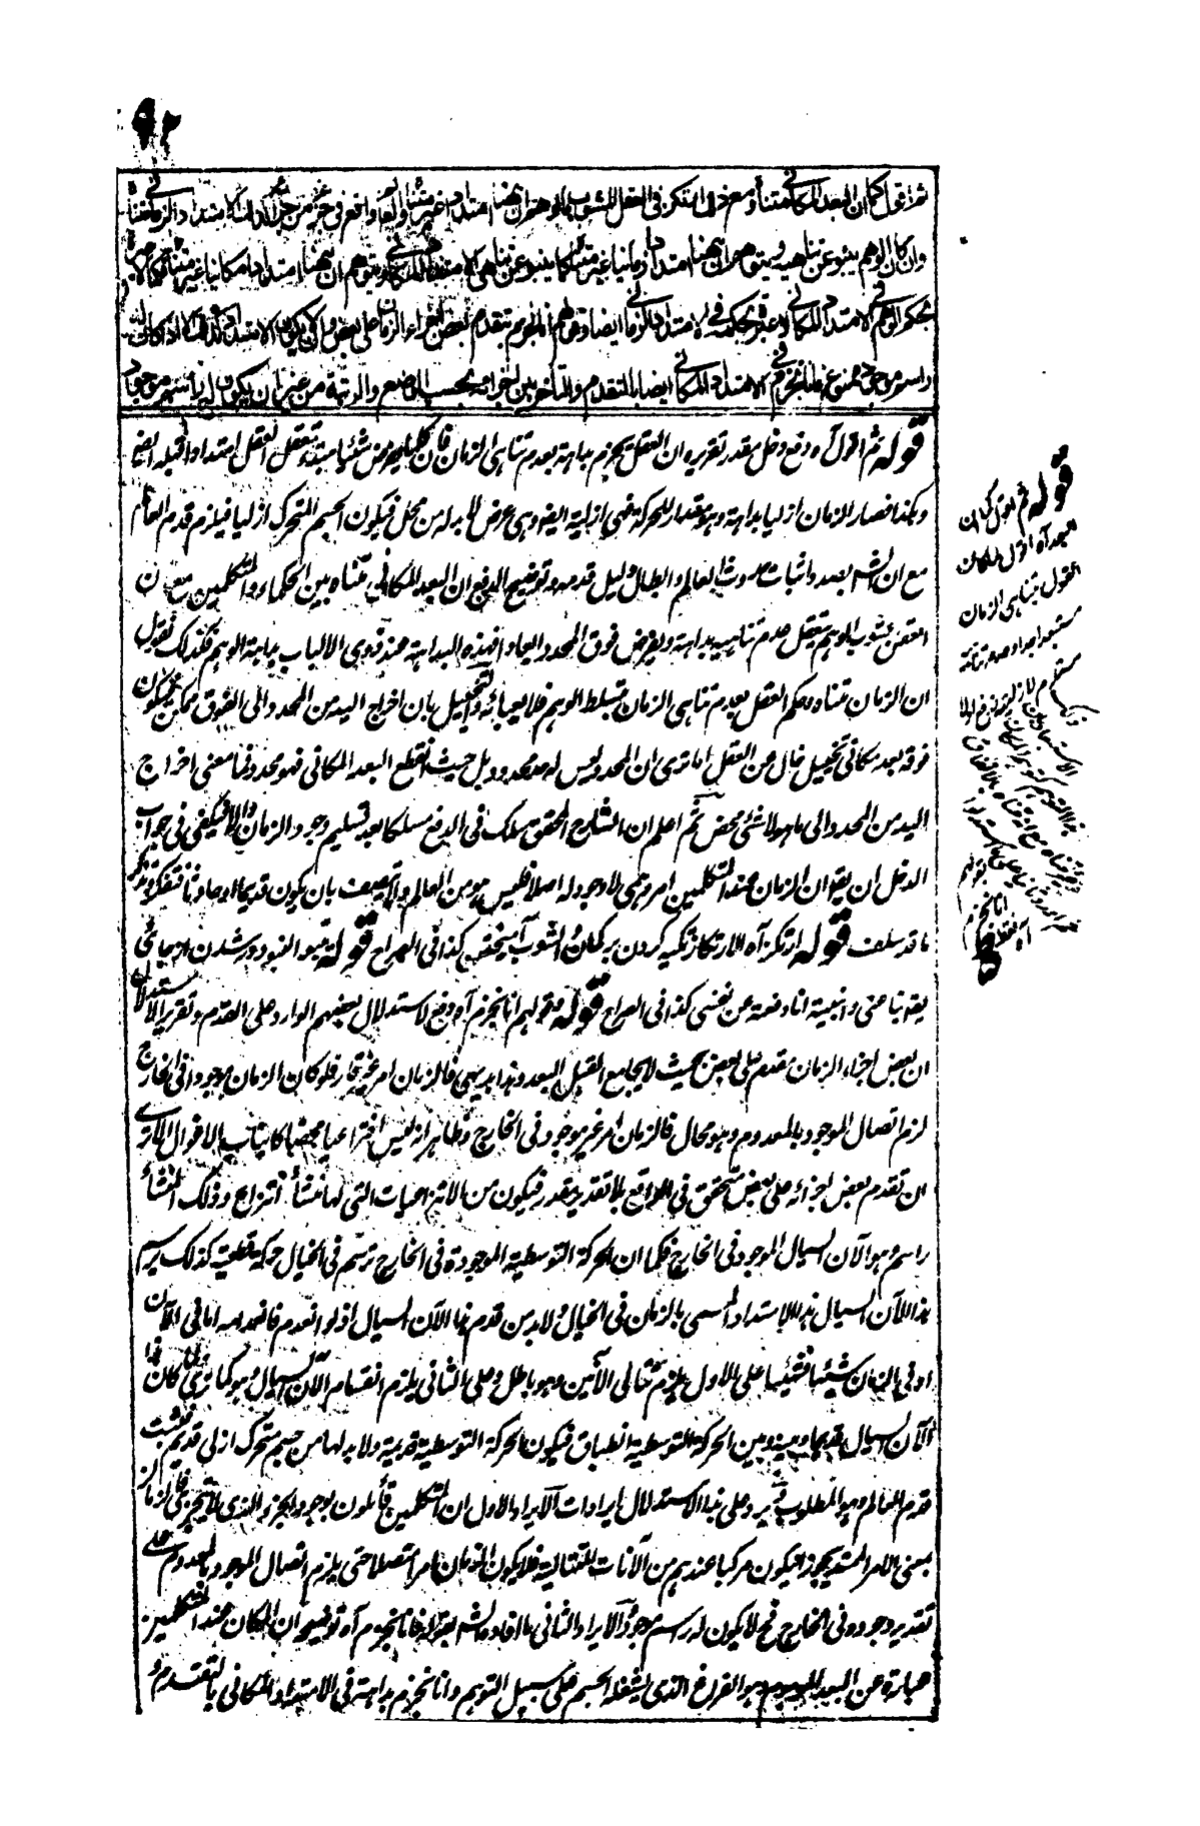 ٩٢
ثم اقول كما ان البعد المكاني متناه ومع ذلك ارتكز في العقل المشوب بالوهم ان ههنا امتدادا غير متناه والعالم واقع في جزء من اجزاء ذلك الامتداد الزماني متناه
وان كان الوهم ينبو عن تناهيه ويتوهم ان ههنا امتدادا زمانيا غير متناه كما ينبو عن تناهي الامتداد المكاني ويتوهم ان ههنا امتدادا مكانيا غير متناه
حكم الوهم في الامتداد المكاني لا عبرة بحكمه في الامتداد الزماني ايضا وقولهم انا نجزم بتقدم بعض اجزاء الزمان على بعض
راسم موجود ممنوع فانا نجزم في الامتداد المكاني ايضا بالتقدم والتأخر بين اجزائه بحسب الوضع والرتبة من غير ان يكون له راسم موجود
قوله ثم اقول آه دفع دخل مقدر تقريره ان العقل يجزم بداهة بعدم تناهي الزمان فان كلما يفرض شيئا مبدأ يتعقل العقل امتدادا قبله ايضا
وهكذا فصار الزمان ازليا بداهة وهو مقدار للحركة فهي ازلية ايضا وهي عرض لا بد له من محل فيكون الجسم المتحرك ازليا فيلزم قدم العالم
مع ان الشارح بصدد اثبات حدوث العالم وابطال دليل قدمه وتوضيح الدفع ان البعد المكاني متناه بين الحكماء والمتكلمين مع ان
العقل بشوب الوهم يتعقل عدم تناهيه بداهة ويفرض فوق المحدد ابعادا فهذه البداهة عند ذوي الالباب بداهة الوهم فكذلك نقول
ان الزمان متناه وحكم العقل بعدم تناهي الزمان بتسلط الوهم فلا يعبأ به والتخييل بان اخراج اليد من المحدد الى الفوق ممكن فيكون
فوقه بعد مكاني تخييل خال عن العقل اما ترى ان المحدد ليس له حد محدود بل حيث انقطع البعد المكاني فهو محدد فما معنى اخراج
اليد من المحدد الى ما هو لا شئ محض ثم اعلم ان الشارح المحقق سلك في الدفع مسلكا بعد تسليم وجود الزمان والا فيكفي في جواب
الدخل ان يقول ان الزمان عند المتكلمين امر وهمي لا وجود له اصلا فليس هو من العالم ولا يتصف بان يكون قديما او حادثا فتفكر وتذكر
ما قد سلف قوله ارتكز آه الارتكاز تكيه كردن بر كمان والشوب آميختن كذا في الصراح قوله ينبو النبو دور شدن از جائ
يقال نبا عني وانبيته انا دفعته عن نفسي كذا في الصراح قوله وقولهم انا نجزم آه دفع لاستدلال بعضهم الوارد على القدم وتقرير الاستدلال
ان بعض اجزاء الزمان مقدم على بعض بحيث لا يجامع القبل البعد وهذا بديهي فالزمان امر غير قار فلو كان الزمان موجودا في الخارج
لزم اتصال الموجود بالمعدوم وهو محال فالزمان امر غير موجود في الخارج وظاهر انه ليس اختراعيا محضا كانياب الاغوال الا ترى
ان تقدم بعض اجزائه على بعض متحقق في الواقع بلا تقدير مقدر فيكون من الانتزاعيات التي لها منشأ انتزاع وذلك المنشأ
راسم وهو الآن السيال الموجود في الخارج فكما ان الحركة التوسطية الموجودة في الخارج ترسم في الخيال حركة قطعية كذلك يرسم
هذا الآن السيال هذا الامتداد المسمى بالزمان في الخيال ولا بد من قدم هذا الآن السيال اذ لو انعدم فانعدامه اما في الآن
او في الزمان شيئا فشيئا على الاول يلزم تتالي الآنين وهو باطل وعلى الثاني يلزم انقسام الآن السيال وهو كما ترى ولما كان هذا
الآن السيال قديما وبينه وبين الحركة التوسطية انطباق فيكون الحركة التوسطية قديمة ولا بد لها من جسم متحرك ازلي قديم فثبت
قدم العالم وهو المطلوب ثم يرد على هذا الاستدلال ايرادات الايراد الاول ان المتكلمين قائلون بوجود الجزء الذي لا يتجزى فالزمان
بمعنى الامر الممتد يجوز ان يكون مركبا عندهم من الآنات المتتالية فلا يكون الزمان امرا متصلا حتى يلزم اتصال الموجود بالمعدوم على
تقدير وجوده في الخارج فح لا يكون له راسم موجود والايراد الثاني ما افاده الشارح بقوله فانا نجزم آه توضيحه ان المكان عند المتكلمين
عبارة عن البعد الموهوم وهو الفراغ الذي يشغله الجسم على سبيل التوهم وانا نجزم بداهة في الامتداد المكاني بالتقدم
قوله ثم اقول كما ان
البعد آه اقول لما كان
القول بتناهي الزمان
مستبعدا